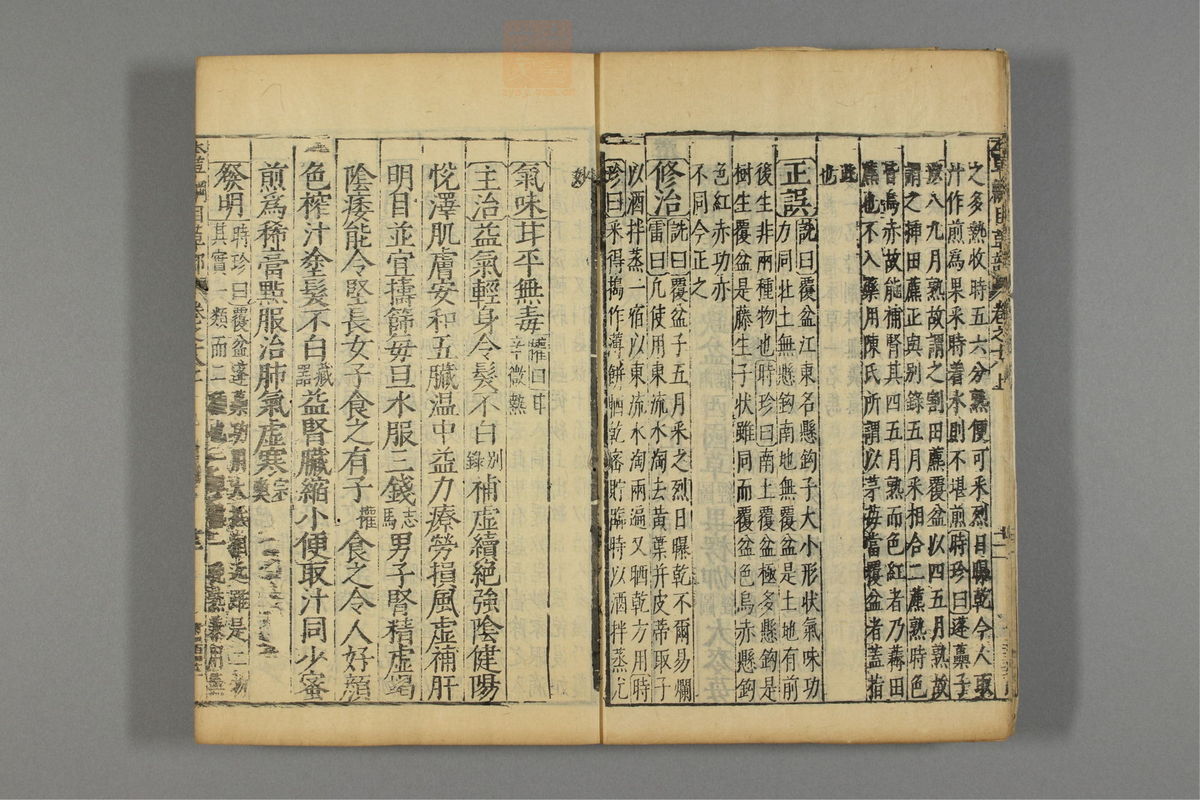 之多熟收時五六分熟便可采烈日曝乾今人取
汁作煎爲果采時著水則不堪煎時珍曰蓬蘽子
八九月熟故謂之割田藨覆盆以四五月熟故
謂之揷田藨正與別錄五月采相合二藨熟時色
皆烏赤故能補腎其四五月熟而色紅者乃蓐田
藨也不入藥用陳氏所謂以茅苺當覆盆者蓋指
此也
正誤詵曰覆盆江東名懸鉤子大小形狀氣味功
力同北土無懸鉤南地無覆盆是土地有前
後生非兩種物也時珍曰南土覆盆極多懸鉤是
樹生覆盆是藤生子狀雖同而覆盆色烏赤懸鉤
色紅赤功亦
不同今正之
修治詵曰覆盆子五月采之烈日曝乾不爾易爛
雷曰凡使用東流水淘去黃葉幷皮蒂取子
以酒拌蒸一宿以東流水淘兩遍又晒乾方用時
珍曰采得搗作薄餠晒乾密貯臨時以酒拌蒸尤
妙
氣味甘平無毒權曰甘辛微熱
主治益氣輕身令髮不白別錄補虛續絕強陰健陽
悅澤肌膚安和五臟温中益力療勞損風虛補肝
明目並宜擣篩每旦水服三錢馬志男子腎精虛竭
陰痿能令堅長女子食之有子權食之令人好顏
色榨汁塗髮不白藏器益腎臟縮小便取汁同少蜜
煎爲稀膏點服治肺氣虛寒宗奭
發明時珍曰覆盆蓬蘽功用大抵相近雖是二物
其實一類而二